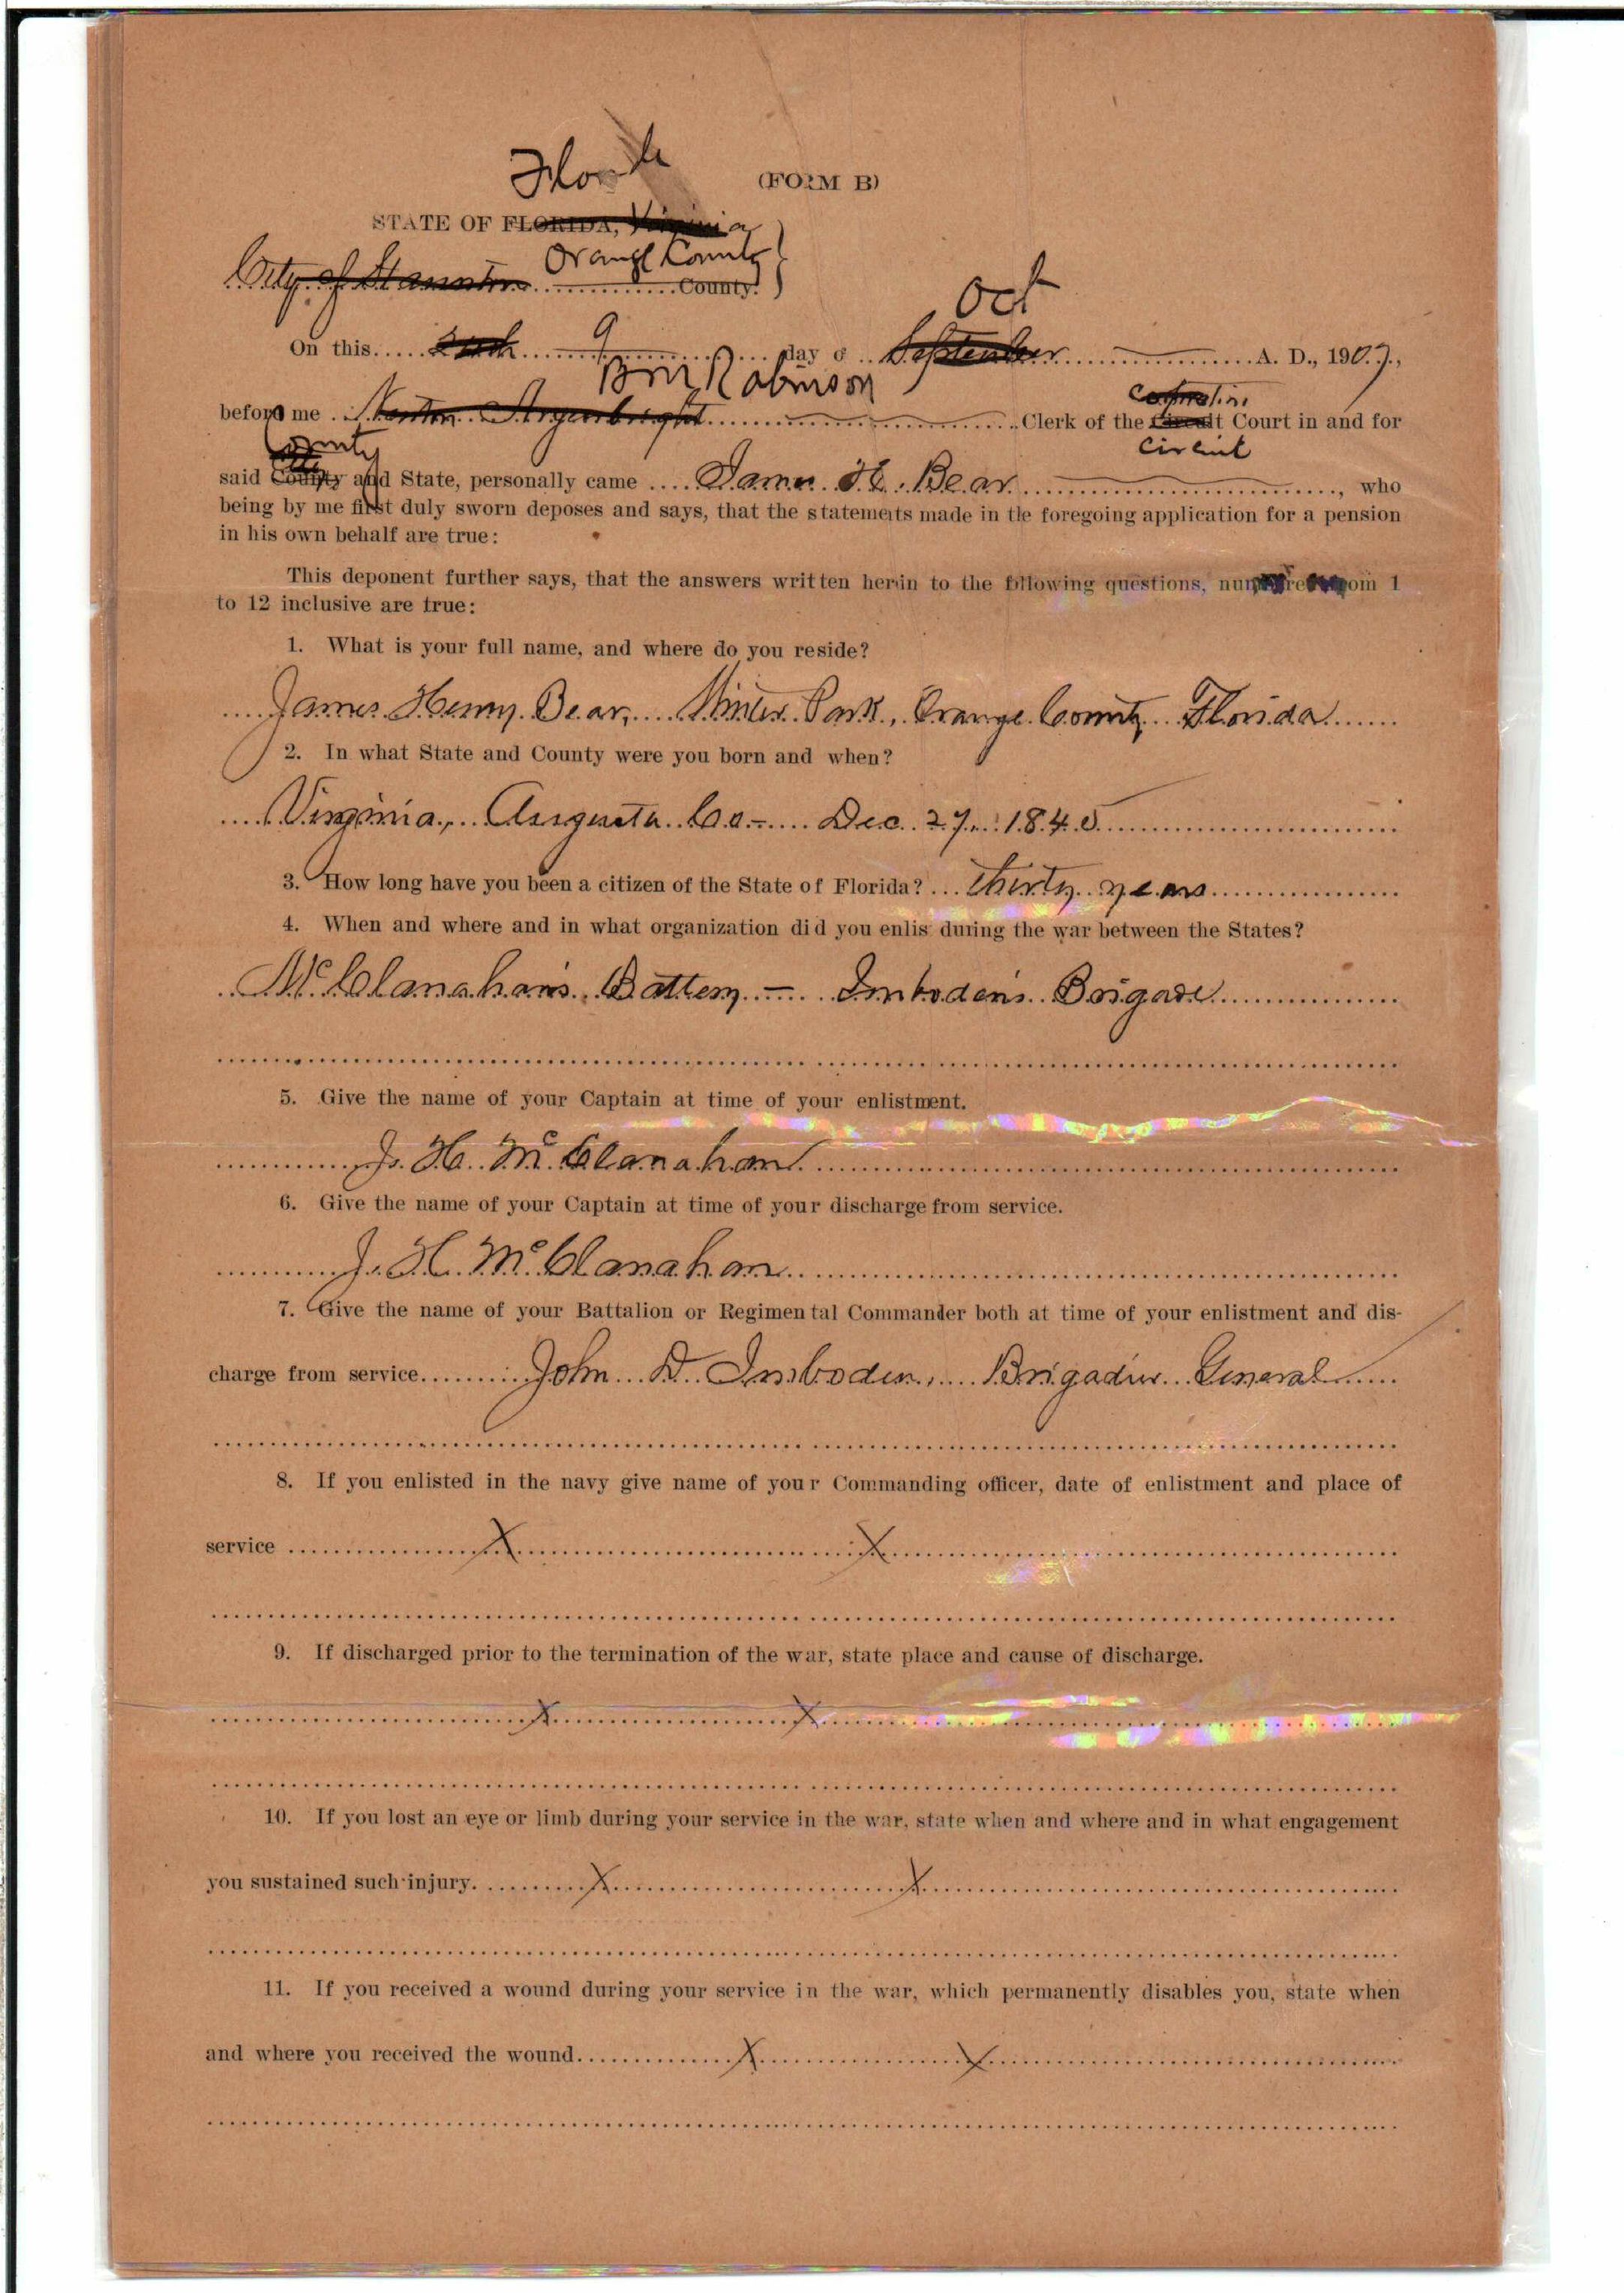 (FORM B)
STATE OF FLORIDA, Virginia
Orange County
City of Staunton County.
Oct
On this 9 day o September A. D., 1907,
B M Robinson
before me Newton Argenbright Clerk of the Circuit Court in and for
County circuit
said County and State, personally came James H. Bear, who
being by me first duly sworn deposes and says, that the statements made in the foregoing application for a pension
in his own behalf are true:
This deponent further says, that the answers written herein to the following questions, numbered from 1
to 12 inclusive are true:
1. What is your full name, and where do you reside?
James Henry Bear, Winter Park, Orange County Florida
2. In what State and County were you born and when?
Virginia, Augusta Co- Dec. 27, 1845
3. How long have you been a citizen of the State of Florida? thirty years
4. When and where and in what organization did you enlis during the war between the States?
McClanahan's Battery - Imboden's Brigade
5. Give the name of your Captain at time of your enlistment.
J. H. McClanahan
6. Give the name of your Captain at time of your discharge from service.
J. H. McClanahan
7. Give the name of your Battalion or Regimental Commander both at time of your enlistment and dis-
charge from service John D. Imboden, Brigadier General
8. If you enlisted in the navy give name of your Commanding officer, date of enlistment and place of
service X X
9. If discharged prior to the termination of the war, state place and cause of discharge.
X X
10. If you lost an eye or limb during your service in the war, state when and where and in what engagement
you sustained such injury. X X
11. If you received a wound during your service in the war, which permanently disables you, state when
and where you received the wound X X